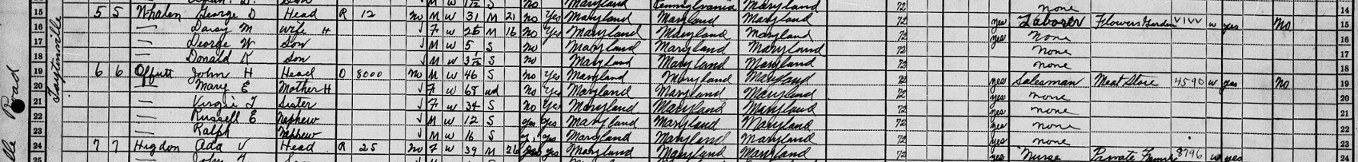 None
15 5 5 Whalen George D Head R 12 No M W 31 M 21 No Yes Maryland Maryland Maryland 72 yes Laborer Flower Garden VIVV W yes No 15
16 — Daisy M Wife H √ F W 25 M 16 No Yes Maryland Maryland Maryland 72 yes None 16
17 — George W Son √ M W 5 S No Maryland Maryland Maryland 72 None 17
18 — Donald K Son √ M W S No Maryland Maryland Maryland 72 None 18
19 6 6 Offutt John H Head O 8000 No M W 46 S No Yes Maryland Maryland Maryland 72 yes Salesman Meat Store 4590 W yes No 19
20 — Mary E Mother H √ F W 68 Wd No Yes Maryland Maryland Maryland 72 yes None 20
21 — Sister √ F W 34 S No Yes Maryland Maryland Maryland 72 yes None 21
22 — Russell E Nephew √ M W 12 S Yes Yes Maryland Maryland Maryland 72 yes None 22
23 — Ralph Nephew √ M W 16 S Maryland Maryland Maryland 72 yes None 23
24 7 7 Higdon Ada V Head R 25 No F W 39 M Yes Maryland Maryland Maryland 72 yes Nurse Private Family 8796 W yes 24